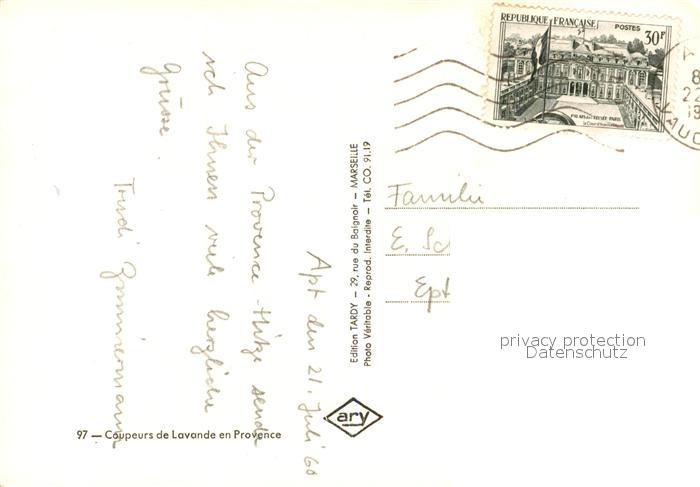 REPUBLIQUE FRANÇAISE
POSTES
30F
PALAIS DE L'ELYSÉE PARIS
8
22
19
VAUC
Apt den 21. Juli 60
Aus der Provence-Hitze sende
ich Ihnen viele herzliche
Grüsse.
Trudi Zimmermann
Edition TARDY — 29, rue du Baignoir — MARSEILLE
Photo Véritable - Reprod. Interdite — Tél. CO. 91.19
Familie
E. Sc
Ept
privacy protection
Datenschutz
ary
97 — Coupeurs de Lavande en Provence